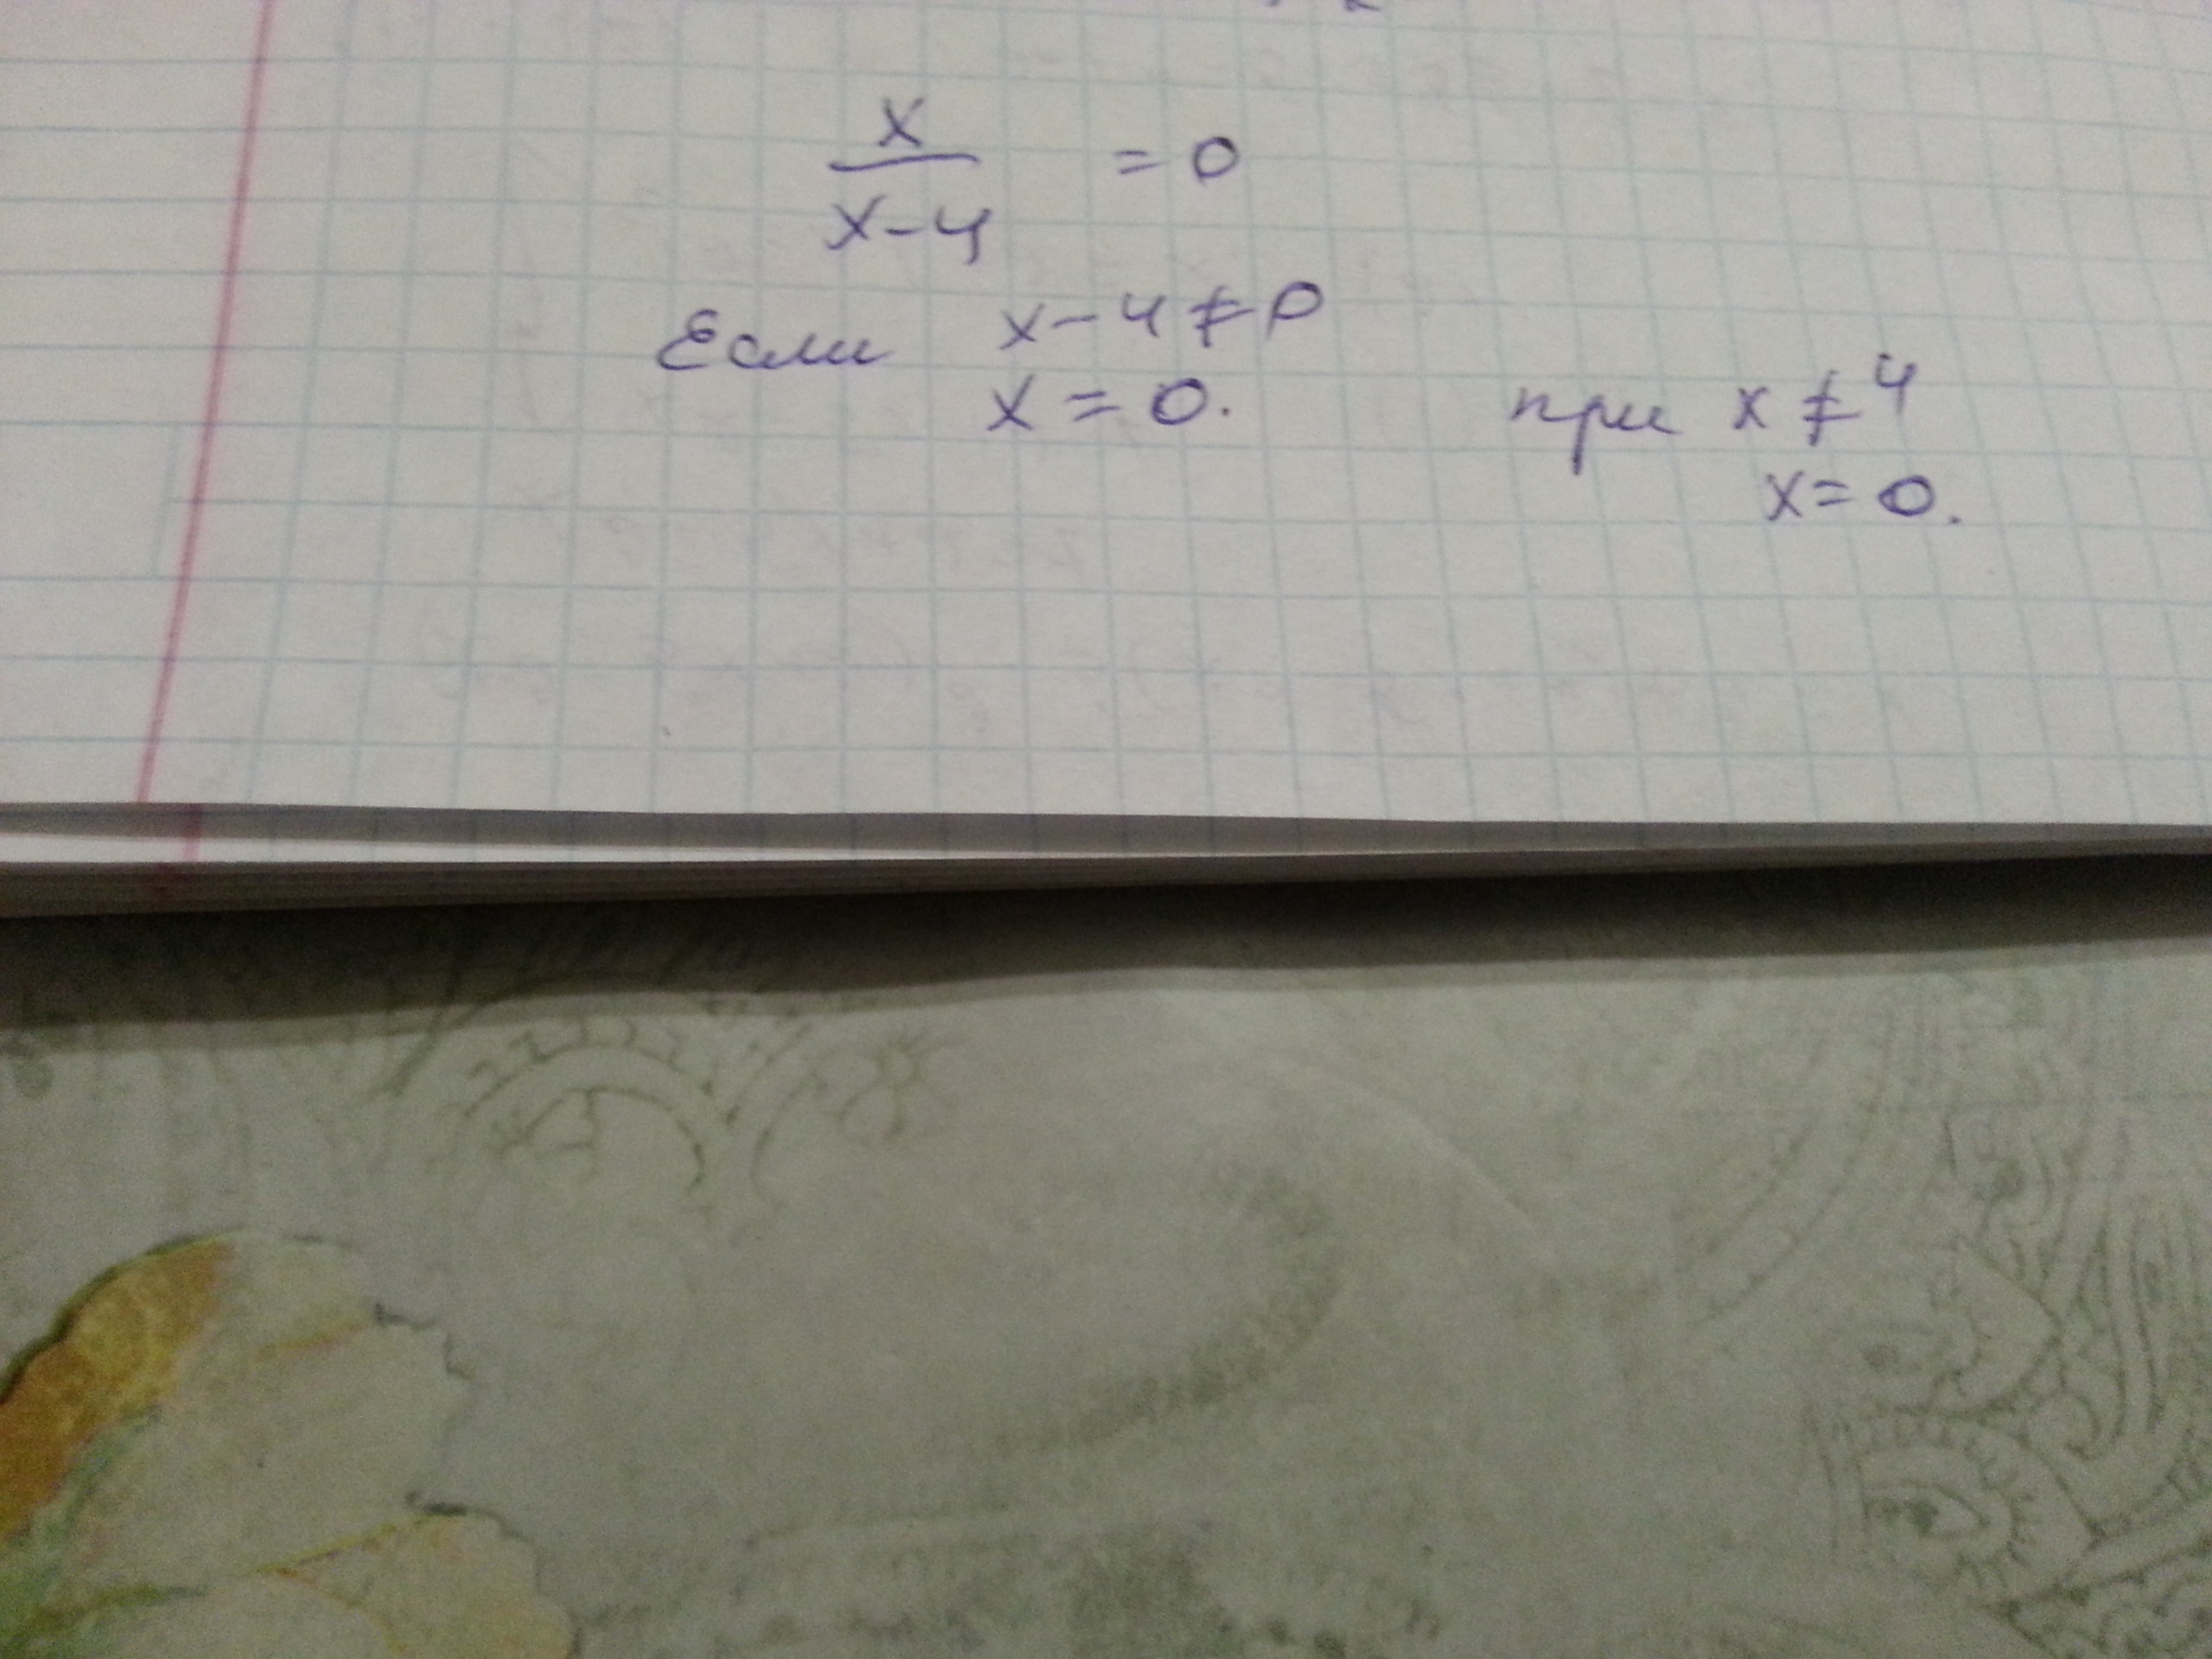 x
x-4 = 0
Если x-4≠0
x = 0.
при x≠4
x = 0.